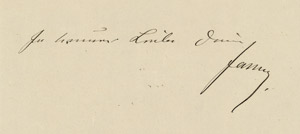 In treuer Liebe Deine
Fanny.